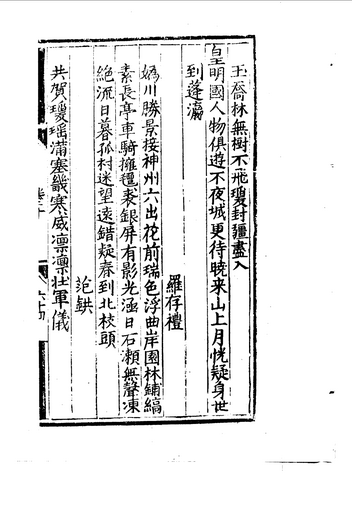 玉喬林無樹不飛瓊封疆盡入
皇明國人物俱遊不夜城更待曉來山上月恍疑身世
到蓬瀛
羅存禮
媯川勝景接神州六出花前瑞色浮曲岸園林鋪縞
素長亭車騎擁氊裘銀屏有影光涵日石瀨無聲凍
絶流日暮孤村迷望遠錯疑春到北枝頭
范鉷
共賀瓊瑤滿塞畿寒威凛凛壯軍儀
卷之十